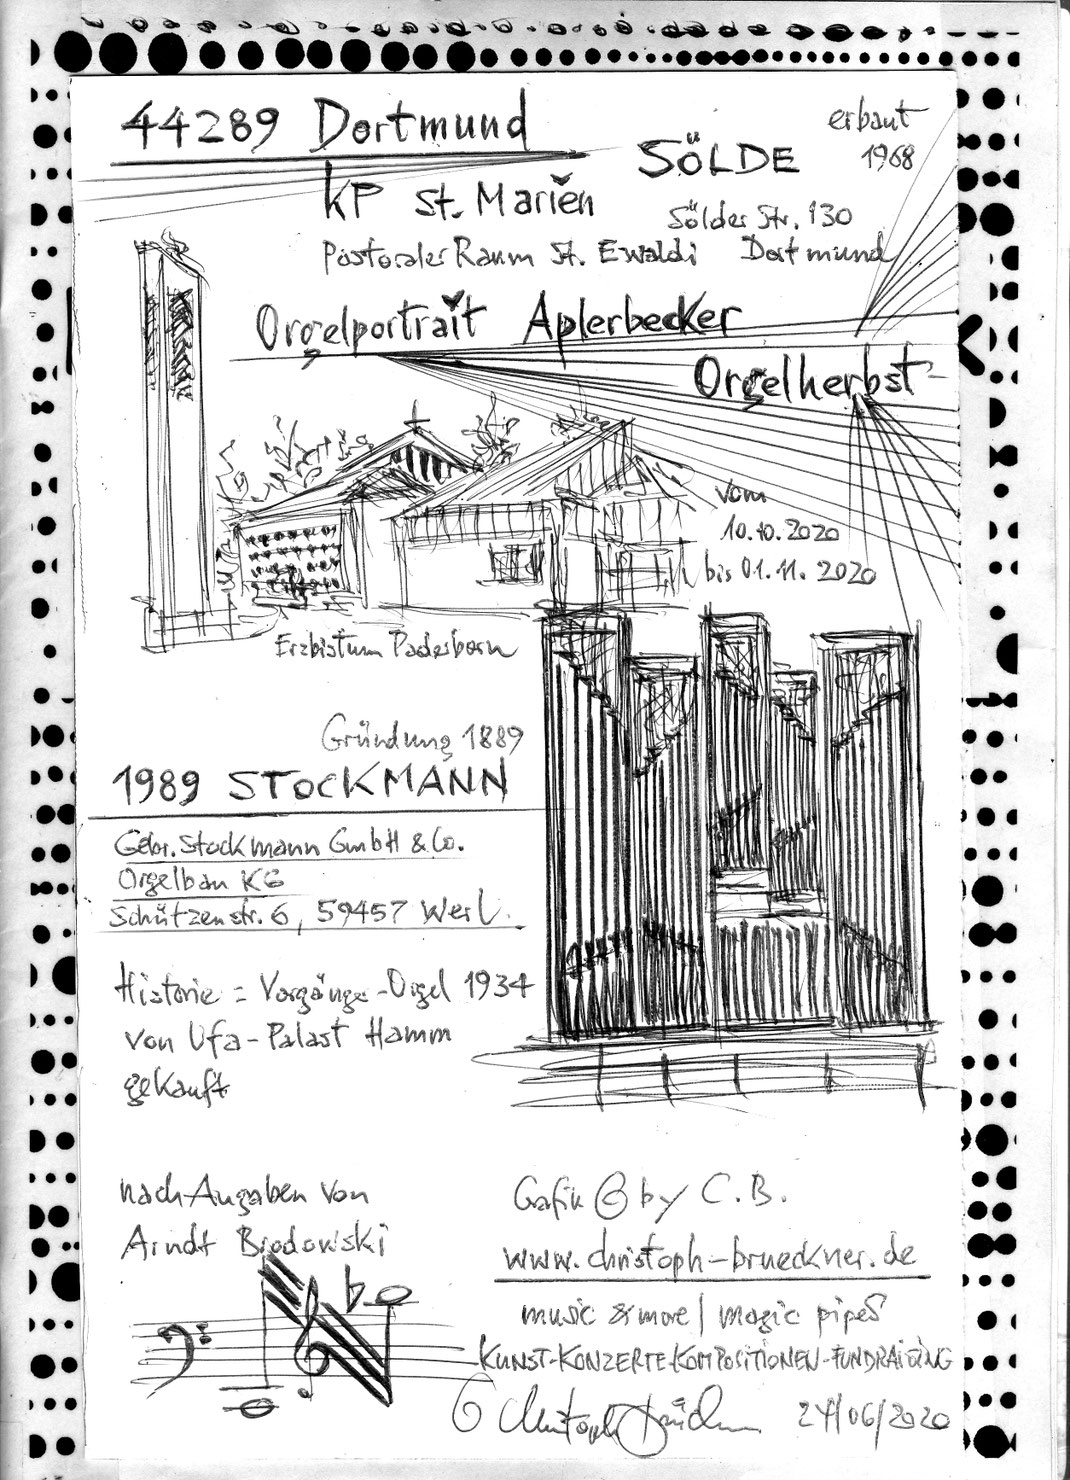 44289 Dortmund
SÖLDE
erbaut
1968
KP St. Marien
Sölder Str. 130
Pastoraler Raum St. Ewaldi Dortmund
Orgelportrait Aplerbecker
Orgelherbst
vom
10.10.2020
bis 01.11.2020
Erzbistum Paderborn
Gründung 1889
1989 STOCKMANN
Gebr. Stockmann GmbH & Co.
Orgelbau KG
Schützenstr. 6, 59457 Werl.
Historie = Vorgänge-Orgel 1934
von Ufa-Palast Hamm
gekauft
nach Angaben von
Arndt Brodowski
Grafik © by C.B.
www.christoph-brueckner.de
music & more / magic pipes
KUNST-KONZERTE-KOMPOSITIONEN-FUNDRAISING
24/06/2020